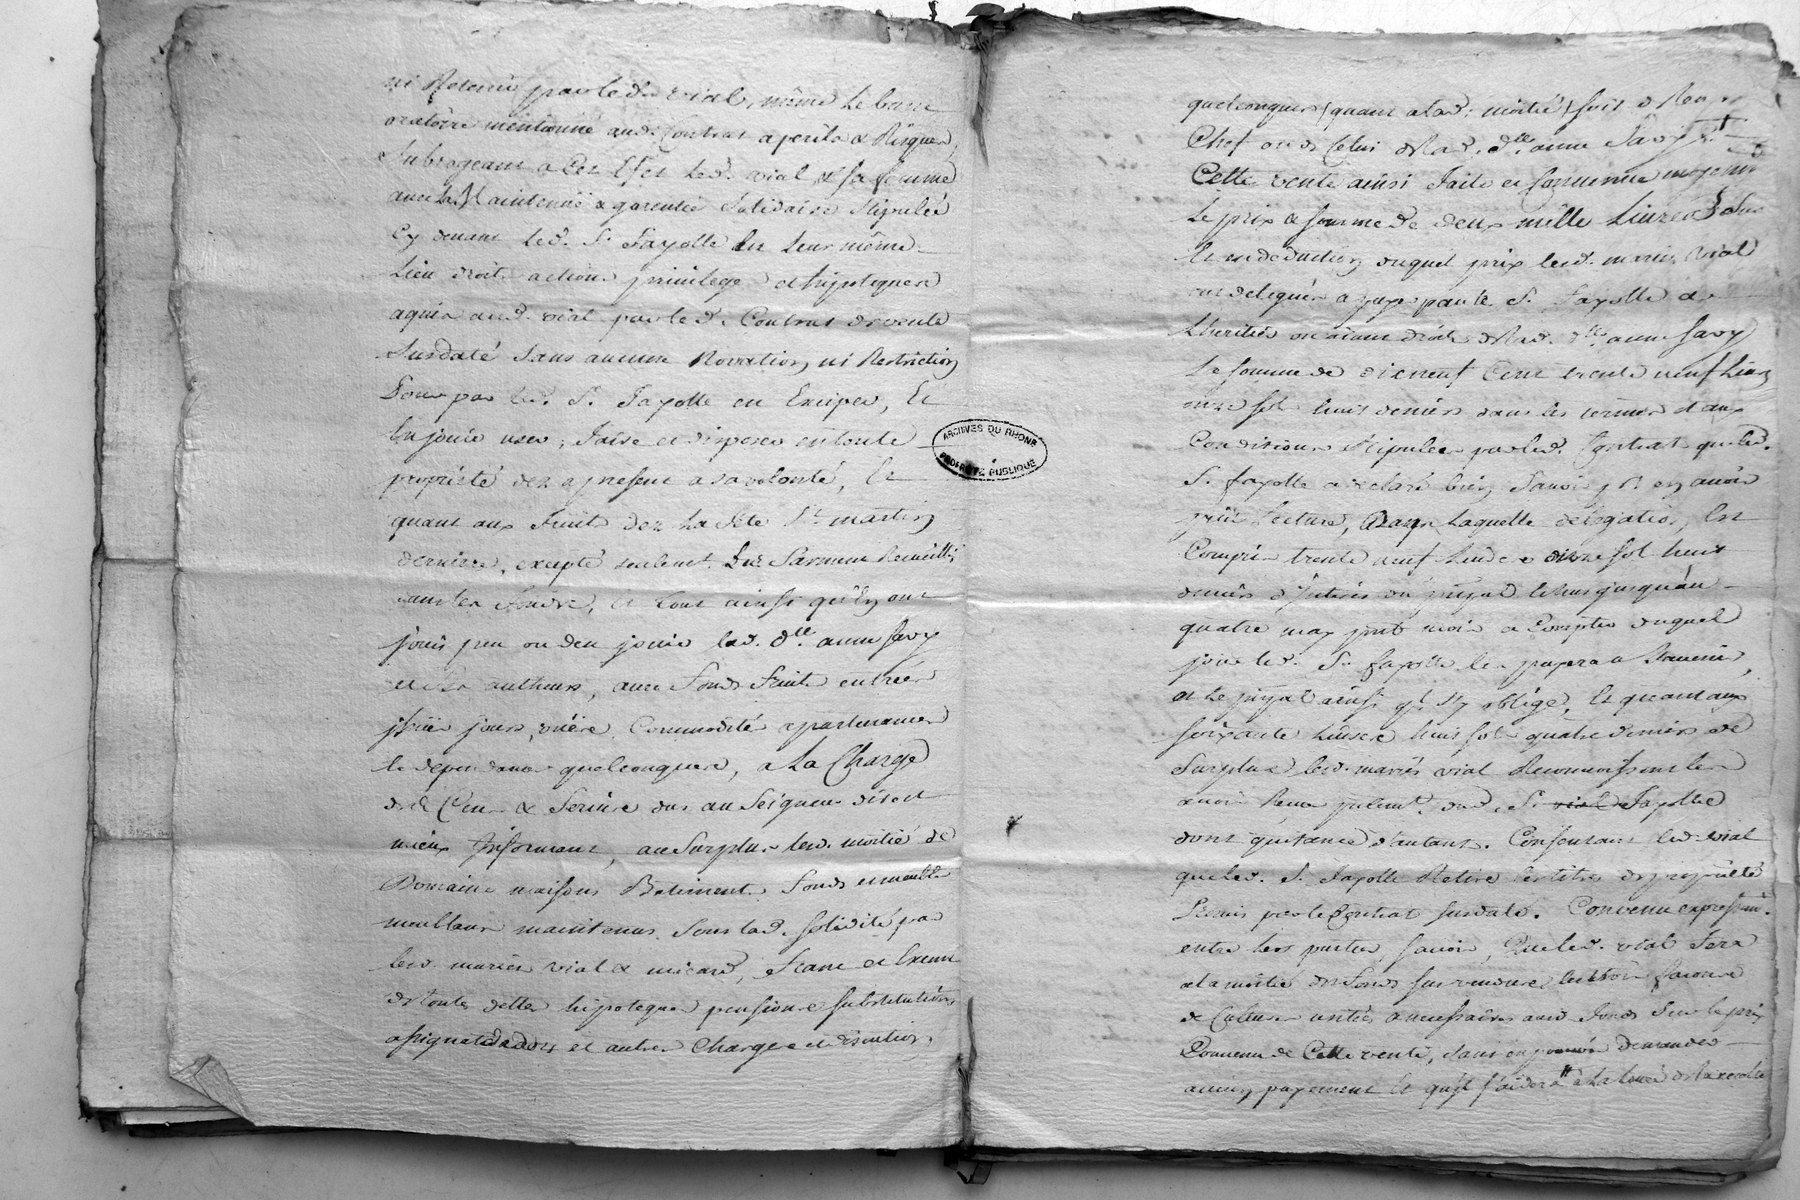 ni Retenir par led. vial, même le banc
oratoire mentionné aud. Contrat a perils & Risques,
Subrogeant a Cet Efet led. vial & sa femme
avec la Maintenüe & garentie Solidaire Stipulée
Cy devant led. Sr. Fayolle En leur même
Lieu droits actions privilege et hypoteques
aquis aud. vial par led. Contrat de vente
Susdaté Sans aucune Novation, ni Restriction
Pour par led. Sr. Fayolle en Exciper, Et
En jouir user, faire et disposer en toute
propriété dez a present a sa volonté, Et
quant aux fruits dez La fete St. martin
derniere, excepté seulemt. Les Sarments Recueillis
et tout ainsi qu'En ont
joüis peu ou deu jouir lad. dlle. anne Savy
et Ses autheurs, avec Fonds Fruits entrées
jssües jours, vüere, Commodités apartenances
Et dependances quelconques, a La Charge
de Cens & Servis dus au Seigneur direct
mieux Informant, au Surplus lesd. moitié de
Domaine maisons Batiments Fonds et meubles
meublans maintenus Sous lad. solidité par
lesd. mariés vial & micard, franc et Exemts
de toutes dettes hipoteques pensions substitutions
et autres Charges et Evictions
quelconques (quant a lad. moitié) soit de leur
Chef ou de Celui de lad. dlle. anne Savy
Cette vente ainsi faite et Convenue moyennt
Le prix & somme de deux mille Livres Sur
Et en deduction duquel prix lesd. mariés Vial
ont delegués a payer par le Sr. Fayolle aux
heritiers ou aiants droit de lad. dlle. anne Savy
La somme de dixneuf Cent trente neuf Livres
onze sols huit deniers dans les termes et aux
Conditions Stipulées par led. Contrat que led.
Sr. fayolle a declaré bien Savoir pr. en avoir
pris Lecture, Dans Laquelle delegation, Est
Compris trente neuf Livres onze sols huit
deniers d'Interets du principal Echus jusqu'au
quatre may prochain a Compter duquel
jour led. Sr. fayolle les payera a l'avenir,
et le principal ainsi qu'il S'y oblige, Et quant aux
soixante Livres huit sols quatre deniers de
Surplus lesd. mariés vial Reconnoissent les
avoir Reçu dud. Sr. Fayolle
dont quitance d'autant. Consentant led. vial
que led. Sr. Fayolle Retire les titres de proprieté
Remis par le Contrat susdaté. Convenu expressémt.
entre les parties, savoir, Que led. vial fera
a la moitié des fonds sus vendus les trois façons
de Culture usités & necessaires auxd. fonds Sur le prix
Convenu de Cette vente, sans en pouvoir demander
aucun payement Et qu'il S'aidera a La Levée de la recolte
ARCHIVES DU RHONE
PROPRIÉTÉ PUBLIQUE